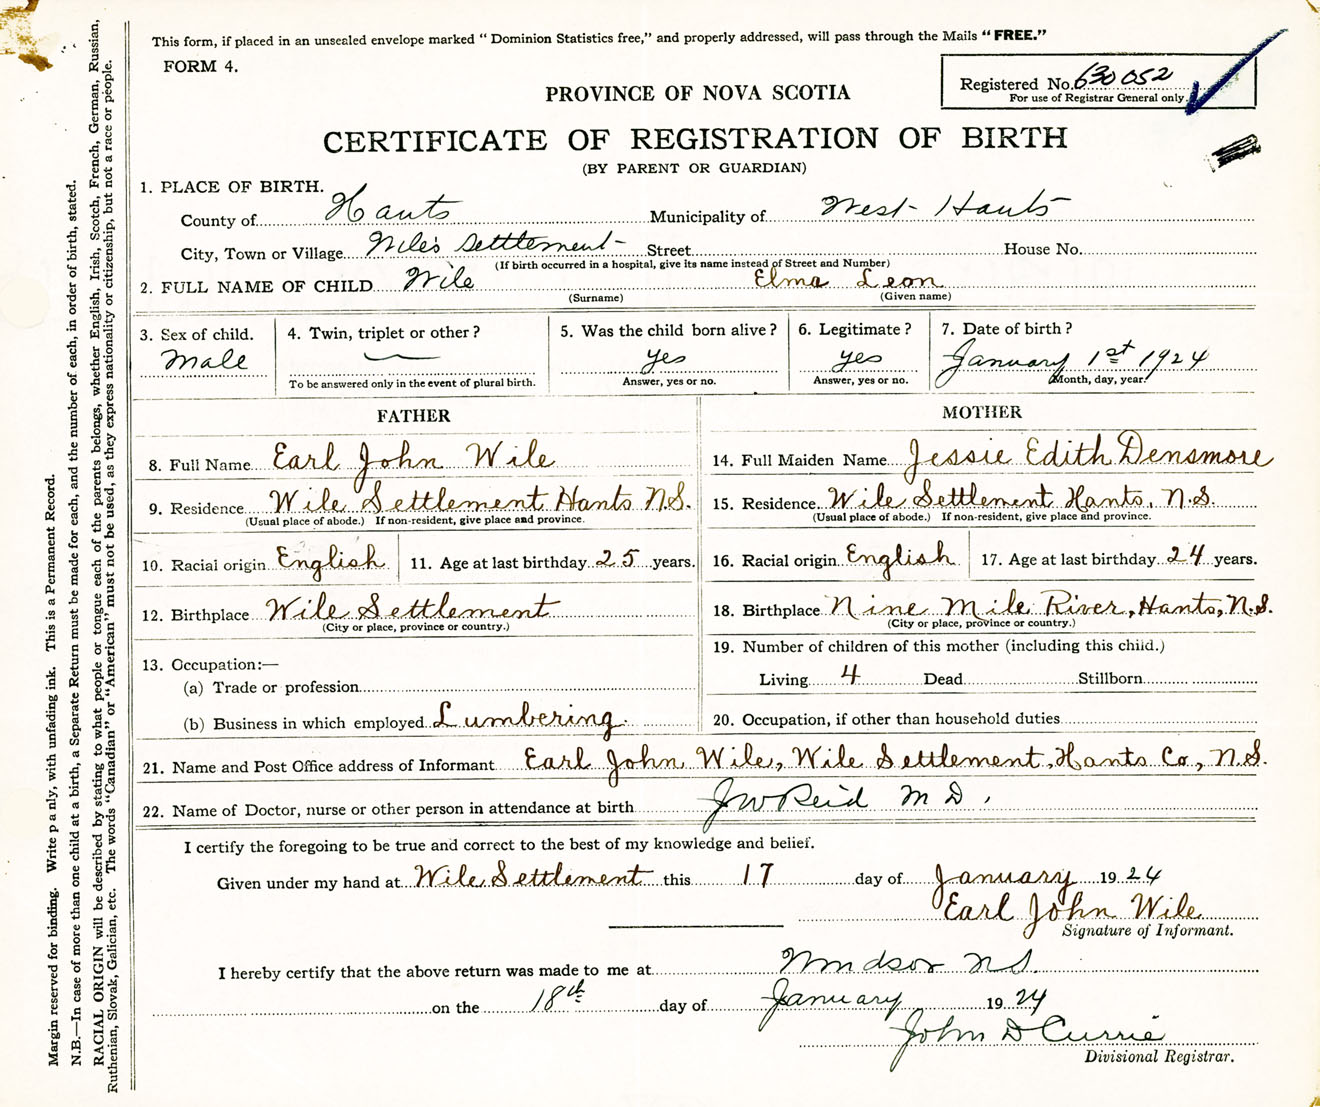 This form, if placed in an unsealed envelope marked "Dominion Statistics free," and properly addressed, will pass through the Mails "FREE."
FORM 4.
Registered No. 630052
For use of Registrar General only.
PROVINCE OF NOVA SCOTIA
CERTIFICATE OF REGISTRATION OF BIRTH
(BY PARENT OR GUARDIAN)
1. PLACE OF BIRTH.
County of Hants Municipality of West Hants
City, Town or Village Wile's Settlement Street House No.
(If birth occurred in a hospital, give its name instead of Street and Number)
2. FULL NAME OF CHILD Wile Elma Leon
(Surname) (Given name)
3. Sex of child. 4. Twin, triplet or other? 5. Was the child born alive? 6. Legitimate? 7. Date of birth?
Male — yes yes January 1st 1924
To be answered only in the event of plural birth. Answer, yes or no. Answer, yes or no. Month, day, year.
FATHER MOTHER
8. Full Name Earl John Wile 14. Full Maiden Name Jessie Edith Densmore
9. Residence Wile Settlement Hants N.S. 15. Residence Wile Settlement Hants, N.S.
(Usual place of abode.) If non-resident, give place and province. (Usual place of abode.) If non-resident, give place and province.
10. Racial origin English 11. Age at last birthday 25 years. 16. Racial origin English 17. Age at last birthday 24 years.
12. Birthplace Wile Settlement 18. Birthplace Nine Mile River, Hants, N.S.
(City or place, province or country.) (City or place, province or country.)
13. Occupation:— 19. Number of children of this mother (including this child.)
(a) Trade or profession Living 4 Dead Stillborn
(b) Business in which employed Lumbering. 20. Occupation, if other than household duties
21. Name and Post Office address of Informant Earl John Wile, Wile Settlement, Hants Co., N.S.
22. Name of Doctor, nurse or other person in attendance at birth J W Reid M D.
I certify the foregoing to be true and correct to the best of my knowledge and belief.
Given under my hand at Wile Settlement this 17 day of January 1924
Earl John Wile
Signature of Informant.
I hereby certify that the above return was made to me at Windsor N S.
on the 18th day of January 1924
John D Currie
Divisional Registrar.
Margin reserved for binding. Write plainly, with unfading ink. This is a Permanent Record.
N.B.—In case of more than one child at a birth, a Separate Return must be made for each, and the number of each, in order of birth, stated.
RACIAL ORIGIN will be described by stating to what people or tongue each of the parents belongs, whether English, Irish, Scotch, French, German, Russian,
Ruthenian, Slovak, Galician, etc. The words "Canadian" or "American" must not be used, as they express nationality or citizenship, but not a race or people.